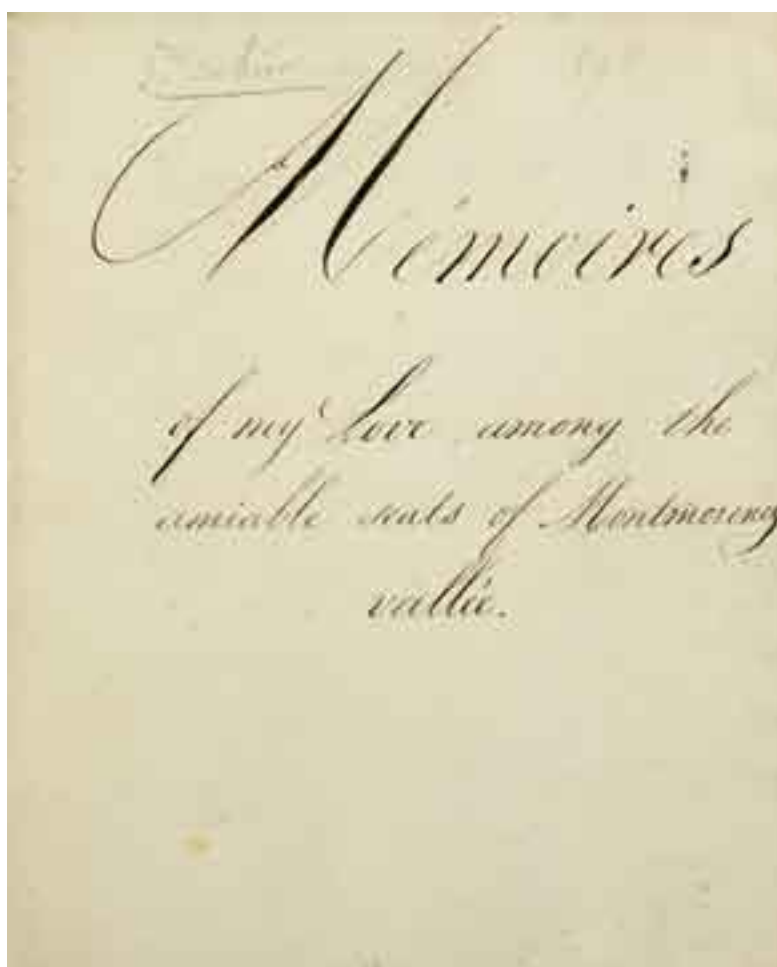 Mémoires
of my Love among the
amiable seats of Montmorency
vallée.